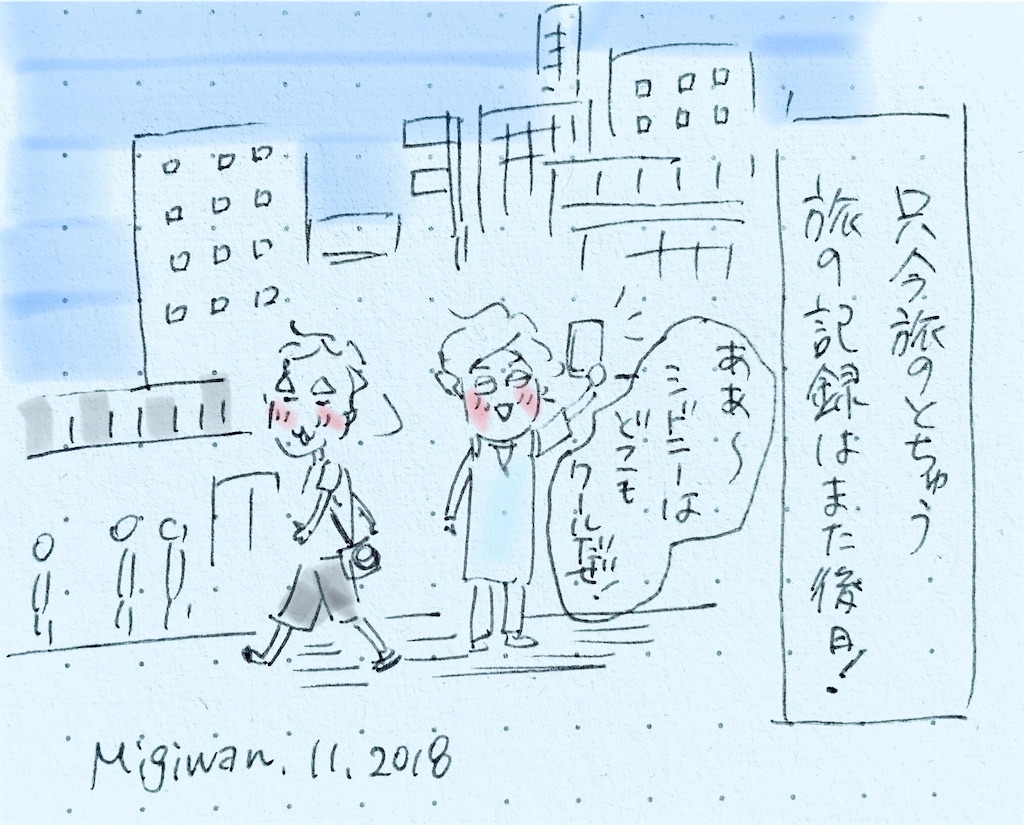 只今旅のとちゅう
旅の記録はまた後日!
ああ〜
シドニーは
どこも
クールだぜ!
Migiwan. 11. 2018